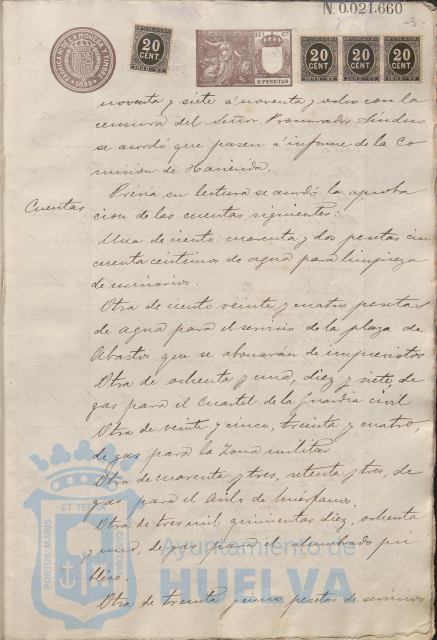 N. 0.021.660
3
FABRICA DE LA MONEDA Y TIMBRE
1899
20 CENT
2 PESETAS
20 CENT
20 CENT
20 CENT
noventa y siete á noventa y ocho con la
censura del Señor Procurador Síndico
se acordó que pasen á informe de la Co
misión de Hacienda.
Cuentas
Prévia su lectura se acordó la aproba
cion de las cuentas siguientes.
Una de ciento cuarenta y dos pesetas cin
cuenta centimos de agua para limpieza
de urinarios.
Otra de ciento veinte y cuatro pesetas
de agua para el servicio de la plaza de
Abastos que se abonarán de imprevistos
Otra de ochenta y una, diez y siete, de
gas para el Cuartel de la Guardia civil
Otra de veinte y cinco, treinta y cuatro,
de gas para la Zona militar
Otra de cuarenta y tres, setenta y tres, de
gas para el Asilo de huérfanos.
Otra de tres mil quinientas diez, ochenta
y una, de gas para el alumbrado pú
blico.
Otra de treinta y cinco pesetas de servicios
PORTUS MARIS
ET TERRAE
CUSTODIA
Ayuntamiento de
HUELVA